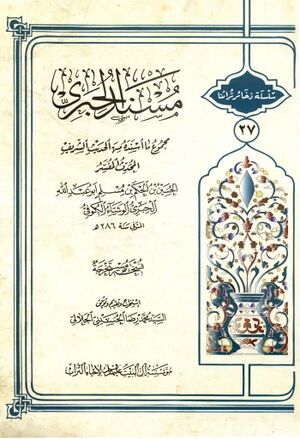 سلسلة ذخائر تراثنا
٢٧
مسند الحبري
مجموع ما أسنده من الحديث الشريف
المحدث المفسر
الحسين بن الحكم بن مسلم أبو عبد الله
الحبري الوشاء الكوفي
المتوفى سنة ٢٨٦ هـ
نسخة مستخرجة
استخراج وتقديم وتحقيق
السيد محمد رضا الحسيني الجلالي
مؤسسة آل البيت عليهم السلام لإحياء التراث